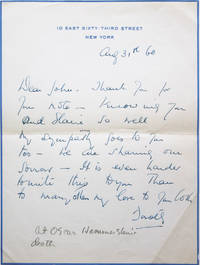 10 EAST SIXTY-THIRD STREET
NEW YORK
Aug 31st 60
Dear John. Thank you for
your note — Knowing you
and so well
my sympathy goes to you
too — We are sharing our
sorrow — It is even harder
to write this to you than
to many others my love to you both
at Oscar Hammerstein
death